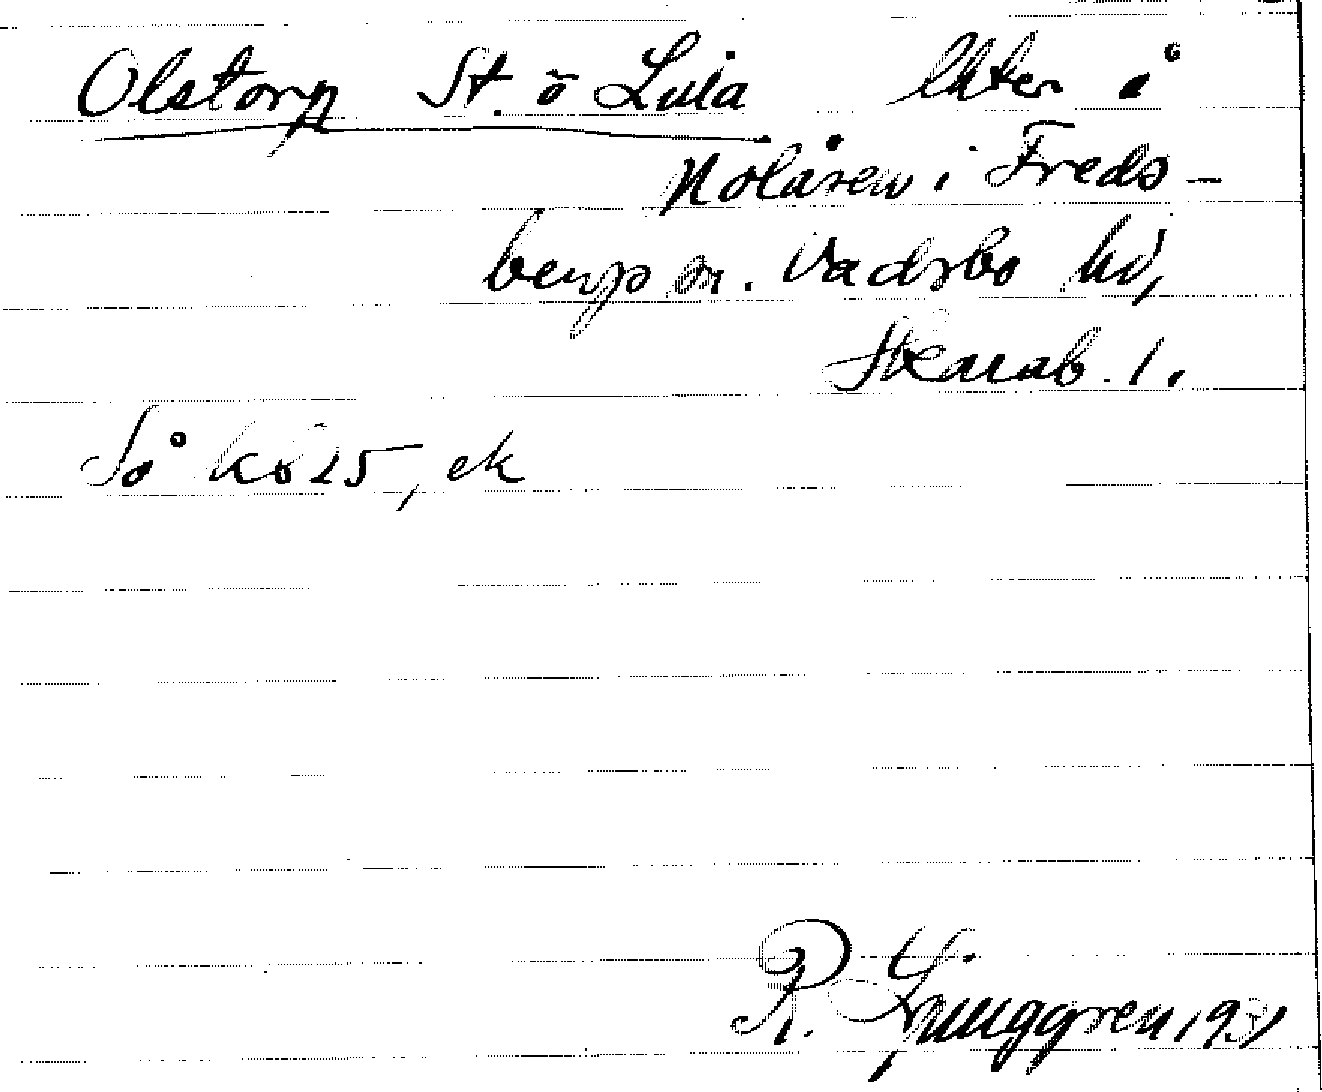 Olstorp St. o Lilla lkter å
Nolåren i Freds-
bergs sn. Vadsbo hd,
Skarab. l.
Så kö 25, ek
R. Ljunggren 1931